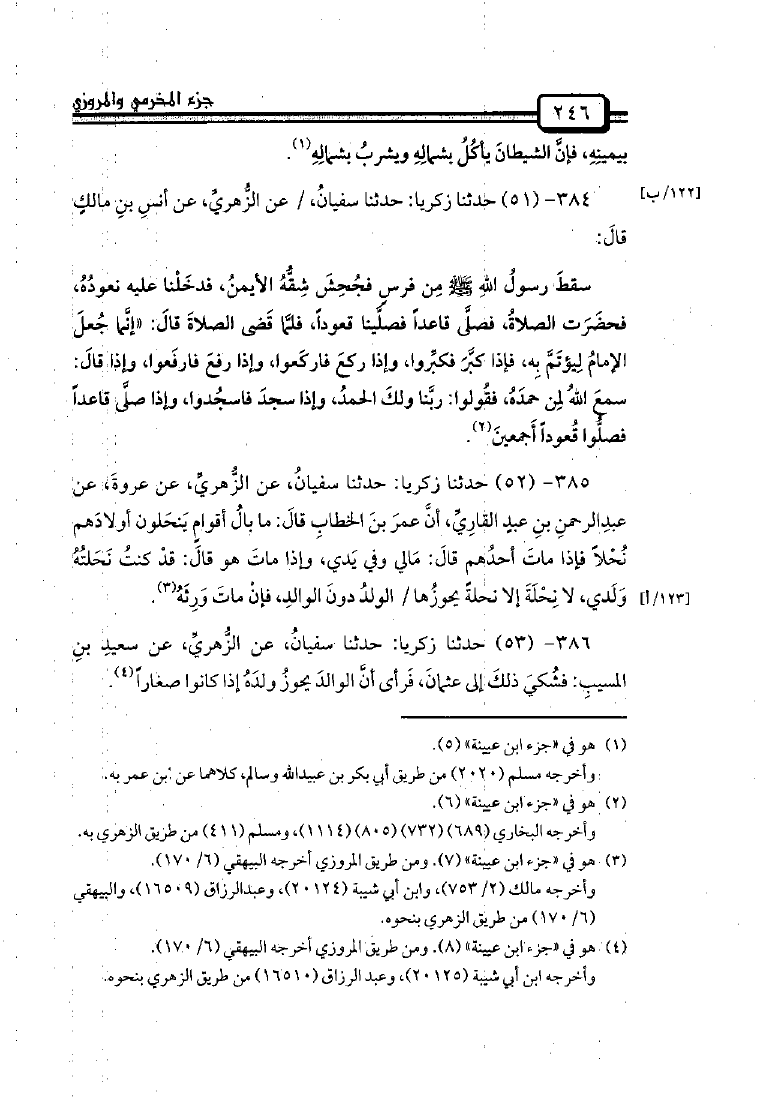 جزء المخرمي والمروزي
٢٤٦
بيمينِهِ، فإنَّ الشيطانَ يأكُلُ بشمالِهِ ويشربُ بشمالِهِ(١).
[١٢٢/ب]
٣٨٤- (٥١) حدثنا زكريا: حدثنا سفيانُ، / عن الزُّهريِّ، عن أنسِ بنِ مالكٍ
قالَ:
سقطَ رسولُ اللهِ ﷺ مِن فرسٍ فجُحِشَ شِقُّهُ الأيمنُ، فدخَلْنا عليه نعودُهُ،
فحضَرَت الصلاةُ، فصلَّى قاعداً فصلَّينا قعوداً، فلمَّا قَضى الصلاةَ قالَ: «إنَّما جُعلَ
الإمامُ لِيؤتَمَّ بِه، فإذا كبَّرَ فكبِّروا، وإذا ركعَ فاركَعوا، وإذا رفعَ فارفَعوا، وإذا قالَ:
سمعَ اللهُ لِمن حمدَهُ، فقُولوا: ربَّنا ولكَ الحمدُ، وإذا سجدَ فاسجُدوا، وإذا صلَّى قاعداً
فصلُّوا قُعوداً أَجمعينَ(٢).
٣٨٥- (٥٢) حدثنا زكريا: حدثنا سفيانُ، عن الزهريِّ، عن عروةَ، عن
عبدِالرحمنِ بنِ عبدٍ القاريِّ، أنَّ عمرَ بنَ الخطابِ قالَ: ما بالُ أقوامٍ يَنحَلون أولادَهم
نُحْلاً فإذا ماتَ أحدُهم قالَ: مَالي وفي يَدي، وإذا ماتَ هو قالَ: قدْ كنتُ نَحَلتُهُ
[١٢٣/أ] وَلَدي، لا نِحْلَةَ إلا نحلةً يحوزُها / الولدُ دونَ الوالدِ، فإنْ ماتَ وَرِثَهُ(٣).
٣٨٦- (٥٣) حدثنا زكريا: حدثنا سفيانُ، عن الزُّهريِّ، عن سعيدِ بنِ
المسيبِ: فشُكيَ ذلكَ إلى عثمانَ، فَرأى أنَّ الوالدَ يحوزُ ولدَهُ إذا كانوا صغاراً(٤).
(١) هو في «جزء ابن عيينة» (٥).
وأخرجه مسلم (٢٠٢٠) من طريق أبي بكر بن عبيدالله وسالم، كلاهما عن ابن عمر به.
(٢) هو في «جزء ابن عيينة» (٦).
وأخرجه البخاري (٦٨٩) (٧٣٢) (٨٠٥) (١١١٤)، ومسلم (٤١١) من طريق الزهري به.
(٣) هو في «جزء ابن عيينة» (٧). ومن طريق المروزي أخرجه البيهقي (٦/ ١٧٠).
وأخرجه مالك (٢/ ٧٥٣)، وابن أبي شيبة (٢٠١٢٤)، وعبدالرزاق (١٦٥٠٩)، والبيهقي
(٦/ ١٧٠) من طريق الزهري بنحوه.
(٤) هو في «جزء ابن عيينة» (٨). ومن طريق المروزي أخرجه البيهقي (٦/ ١٧٠).
وأخرجه ابن أبي شيبة (٢٠١٢٥)، وعبد الرزاق (١٦٥١٠) من طريق الزهري بنحوه.